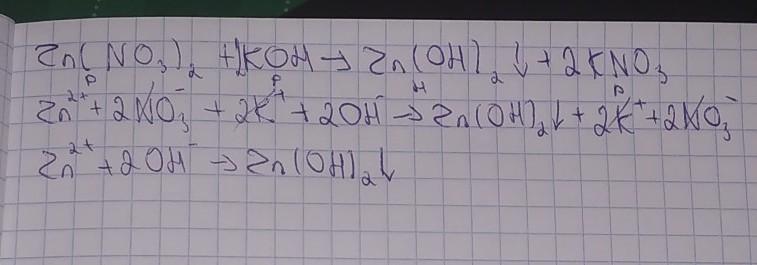 Zn(NO₃)₂ + 2KOH → Zn(OH)₂↓ + 2KNO₃
р р н р
Zn²⁺ + 2NO₃⁻ + 2K⁺ + 2OH⁻ → Zn(OH)₂↓ + 2K⁺ + 2NO₃⁻
Zn²⁺ + 2OH⁻ → Zn(OH)₂↓